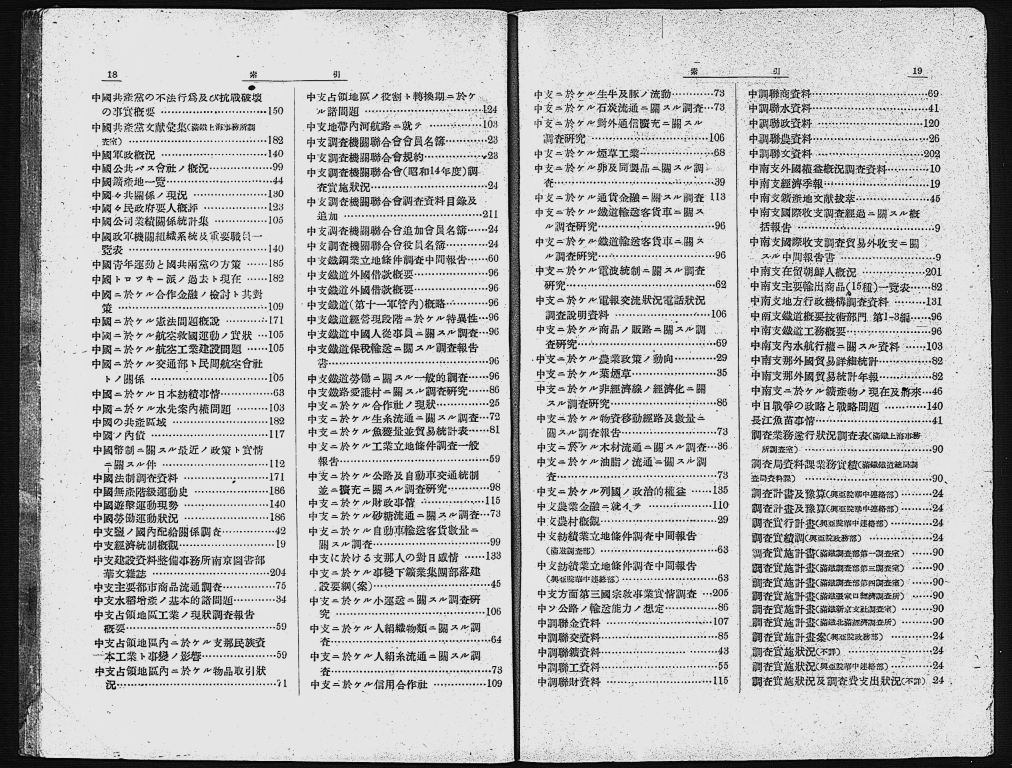 18
索 引
中國共產黨の不法行爲及び抗戰破壞
の事實概要 150
中國共產黨文獻彙集(滿鐵上海事務所調
查室) 182
中國軍政槪況 140
中國公共バス會社ノ槪況 99
中國鑛產地一覽 44
中國々共關係ノ現況 130
中國々民政府要人槪評 123
中國公司業績關係統計集 105
中國政軍機關組織系統及重要職員一
覽表 140
中國靑年運動と國共兩黨の方策 185
中國トロツキー派ノ過去ト現在 182
中國ニ於ケル合作金融ノ檢討ト其對
策 109
中國ニ於ケル憲法問題槪說 171
中國ニ於ケル航空救國運動ノ實狀 105
中國ニ於ケル航空工業建設問題 105
中國ニ於ケル交通部ト民間航空會社
トノ關係 105
中國ニ於ケル日本紡績事情 63
中國ニ於ケル水先案內權問題 103
中國の共產區域 182
中國ノ內債 117
中國幣制ニ關スル最近ノ政策ト實情
ニ關スル件 112
中國法制調查資料 171
中國無產階級運動史 186
中國遊擊運動現勢 140
中國勞働運動狀況 186
中支鹽ノ國內配給關係調查 42
中支經濟統制槪觀 19
中支建設資料整備事務所南京圖書部
華文雜誌 204
中支主要都市商品流通調查 75
中支水稻增產ノ基本的諸問題 34
中支占領地區工業ノ現狀調查報告
槪要 59
中支占領地區內ニ於ケル支那民族資
本工業ト事變ノ影響 59
中支占領地區內ニ於ケル物品取引狀
況 71
中支占領地區ノ役割ト轉換期ニ於ケ
ル諸問題 124
中支地帶內河航路ニ就テ 103
中支調查機關聯合會會員名簿 23
中支調查機關聯合會規約 23
中支調查機關聯合會(昭和14年度)調
查實施狀況 24
中支調查機關聯合會調查資料目錄及
追加 211
中支調查機關聯合會追加會員名簿 24
中支調查機關聯合會役員名簿 24
中支鐵鋼業立地條件調查中間報告 60
中支鐵道外國借款槪要 96
中支鐵道外國借款槪要 96
中支鐵道(第十一軍管內)槪略 96
中支鐵道經營現段階ニ於ケル特異性 96
中支鐵道中國人從事員ニ關スル調查 96
中支鐵道保稅輸送ニ關スル調查報告
書 96
中支鐵道勞働ニ關スル一般的調查 96
中支鐵路愛護村ニ關スル調查研究 86
中支ニ於ケル合作社ノ現狀 25
中支ニ於ケル生糸流通ニ關スル調查 72
中支ニ於ケル魚獲量並貿易統計表 81
中支ニ於ケル工業立地條件調查一般
報告 59
中支ニ於ケル公路及自動車交通統制
並ニ擴充ニ關スル調查研究 98
中支ニ於ケル財政事情 115
中支ニ於ケル砂糖流通ニ關スル調查 73
中支ニ於ケル自動車輸送客貨數量ニ
關スル調查 99
中支に於ける支那人の對日感情 133
中支ニ於ケル事變下鑛業集團部落建
設要綱(案) 45
中支ニ於ケル小運送ニ關スル調查研
究 106
中支ニ於ケル人絹織物類ニ關スル調
查 64
中支ニ於ケル人絹糸流通ニ關スル調
查 73
中支ニ於ケル信用合作社 109
索 引
19
中支ニ於ケル生牛及豚ノ流動 73
中支ニ於ケル石炭流通ニ關スル調查 73
中支ニ於ケル對外通信擴充ニ關スル
調查研究 106
中支ニ於ケル煙草工業 68
中支ニ於ケル卵及同製品ニ關スル調
查 39
中支ニ於ケル通貨金融ニ關スル調查 113
中支ニ於ケル鐵道輸送客貨車ニ關ス
ル調查研究 96
中支ニ於ケル鐵道輸送客貨車ニ關ス
ル調查研究 96
中支ニ於ケル電波統制ニ關スル調查
研究 62
中支ニ於ケル電報交流狀況電話狀況
調查說明資料 106
中支ニ於ケル商品ノ販路ニ關スル調
查研究 69
中支ニ於ケル農業政策ノ動向 29
中支ニ於ケル葉煙草 35
中支ニ於ケル非經濟線ノ經濟化ニ關
スル調查研究 86
中支ニ於ケル物資移動經路及數量ニ
關スル調查報告 73
中支ニ於ケル木材流通ニ關スル調查 36
中支ニ於ケル油脂ノ流通ニ關スル調
查 73
中支ニ於ケル列國ノ政治的權益 135
中支農業金融ニ就イテ 110
中支農村槪觀 29
中支紡績業立地條件調查中間報告
(滿鐵調查部) 63
中支紡績業立地條件調查中間報告
(興亞院華中連絡部) 63
中支方面第三國宗敎事業實情調查 205
中ソ公路ノ輸送能力ノ想定 86
中調聯金資料 107
中調聯交資料 85
中調聯鑛資料 43
中調聯工資料 55
中調聯財資料 115
中調聯商資料 69
中調聯水資料 41
中調聯政資料 120
中調聯農資料 26
中調聯文資料 202
中南支外國權益槪況調查資料 10
中南支經濟季報 19
中南支鑛產地文獻拔萃 45
中南支國際收支調查經過ニ關スル槪
括報告 9
中南支國際收支調查貿易外收支ニ關
スル中間報吿書 9
中南支在留朝鮮人槪況 201
中南支主要輸出商品(15種)一覽表 82
中南支地方行政機構調查資料 131
中南支鐵道槪要技術部門 第1-3編 96
中南支鐵道工務槪要 96
中南支內水航行權ニ關スル資料 103
中南支那外國貿易詳細統計 82
中南支那外國貿易統計年報 82
中南支ニ於ケル鑛產物ノ現在及將來 46
中日戰爭の政略と戰略問題 140
長江魚苗事情 41
調查業務遂行狀況調查表(滿鐵上海事務
所調查室) 90
調查局資料課業務實績(滿鐵鐵道總局調
查局資料課) 90
調查計畫及豫算(興亞院華中連絡部) 24
調查計畫及豫算(興亞院華中連絡部) 24
調查實行計畫(興亞院華中連絡部) 24
調查實績調(興亞院政務部) 24
調查實施計畫(滿鐵調查部第一調查室) 90
調查實施計畫(滿鐵調查部第三調查室) 90
調查實施計畫(滿鐵調查部第二調查室) 90
調查實施計畫(滿鐵張家口經濟調查所) 90
調查實施計畫(滿鐵新京支社調查室) 90
調查實施計畫(滿鐵北滿經濟調查所) 90
調查實施計畫案(興亞院政務部) 24
調查實施狀況(不詳) 24
調查實施狀況(興亞院華中連絡部) 24
調查實施狀況及調查費支出狀況(不詳) 24